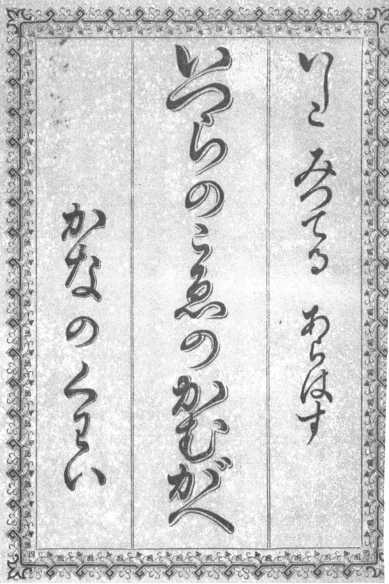 いしこ みつてる あらはす
いつらのこゑのかむがへ
かなのくわい